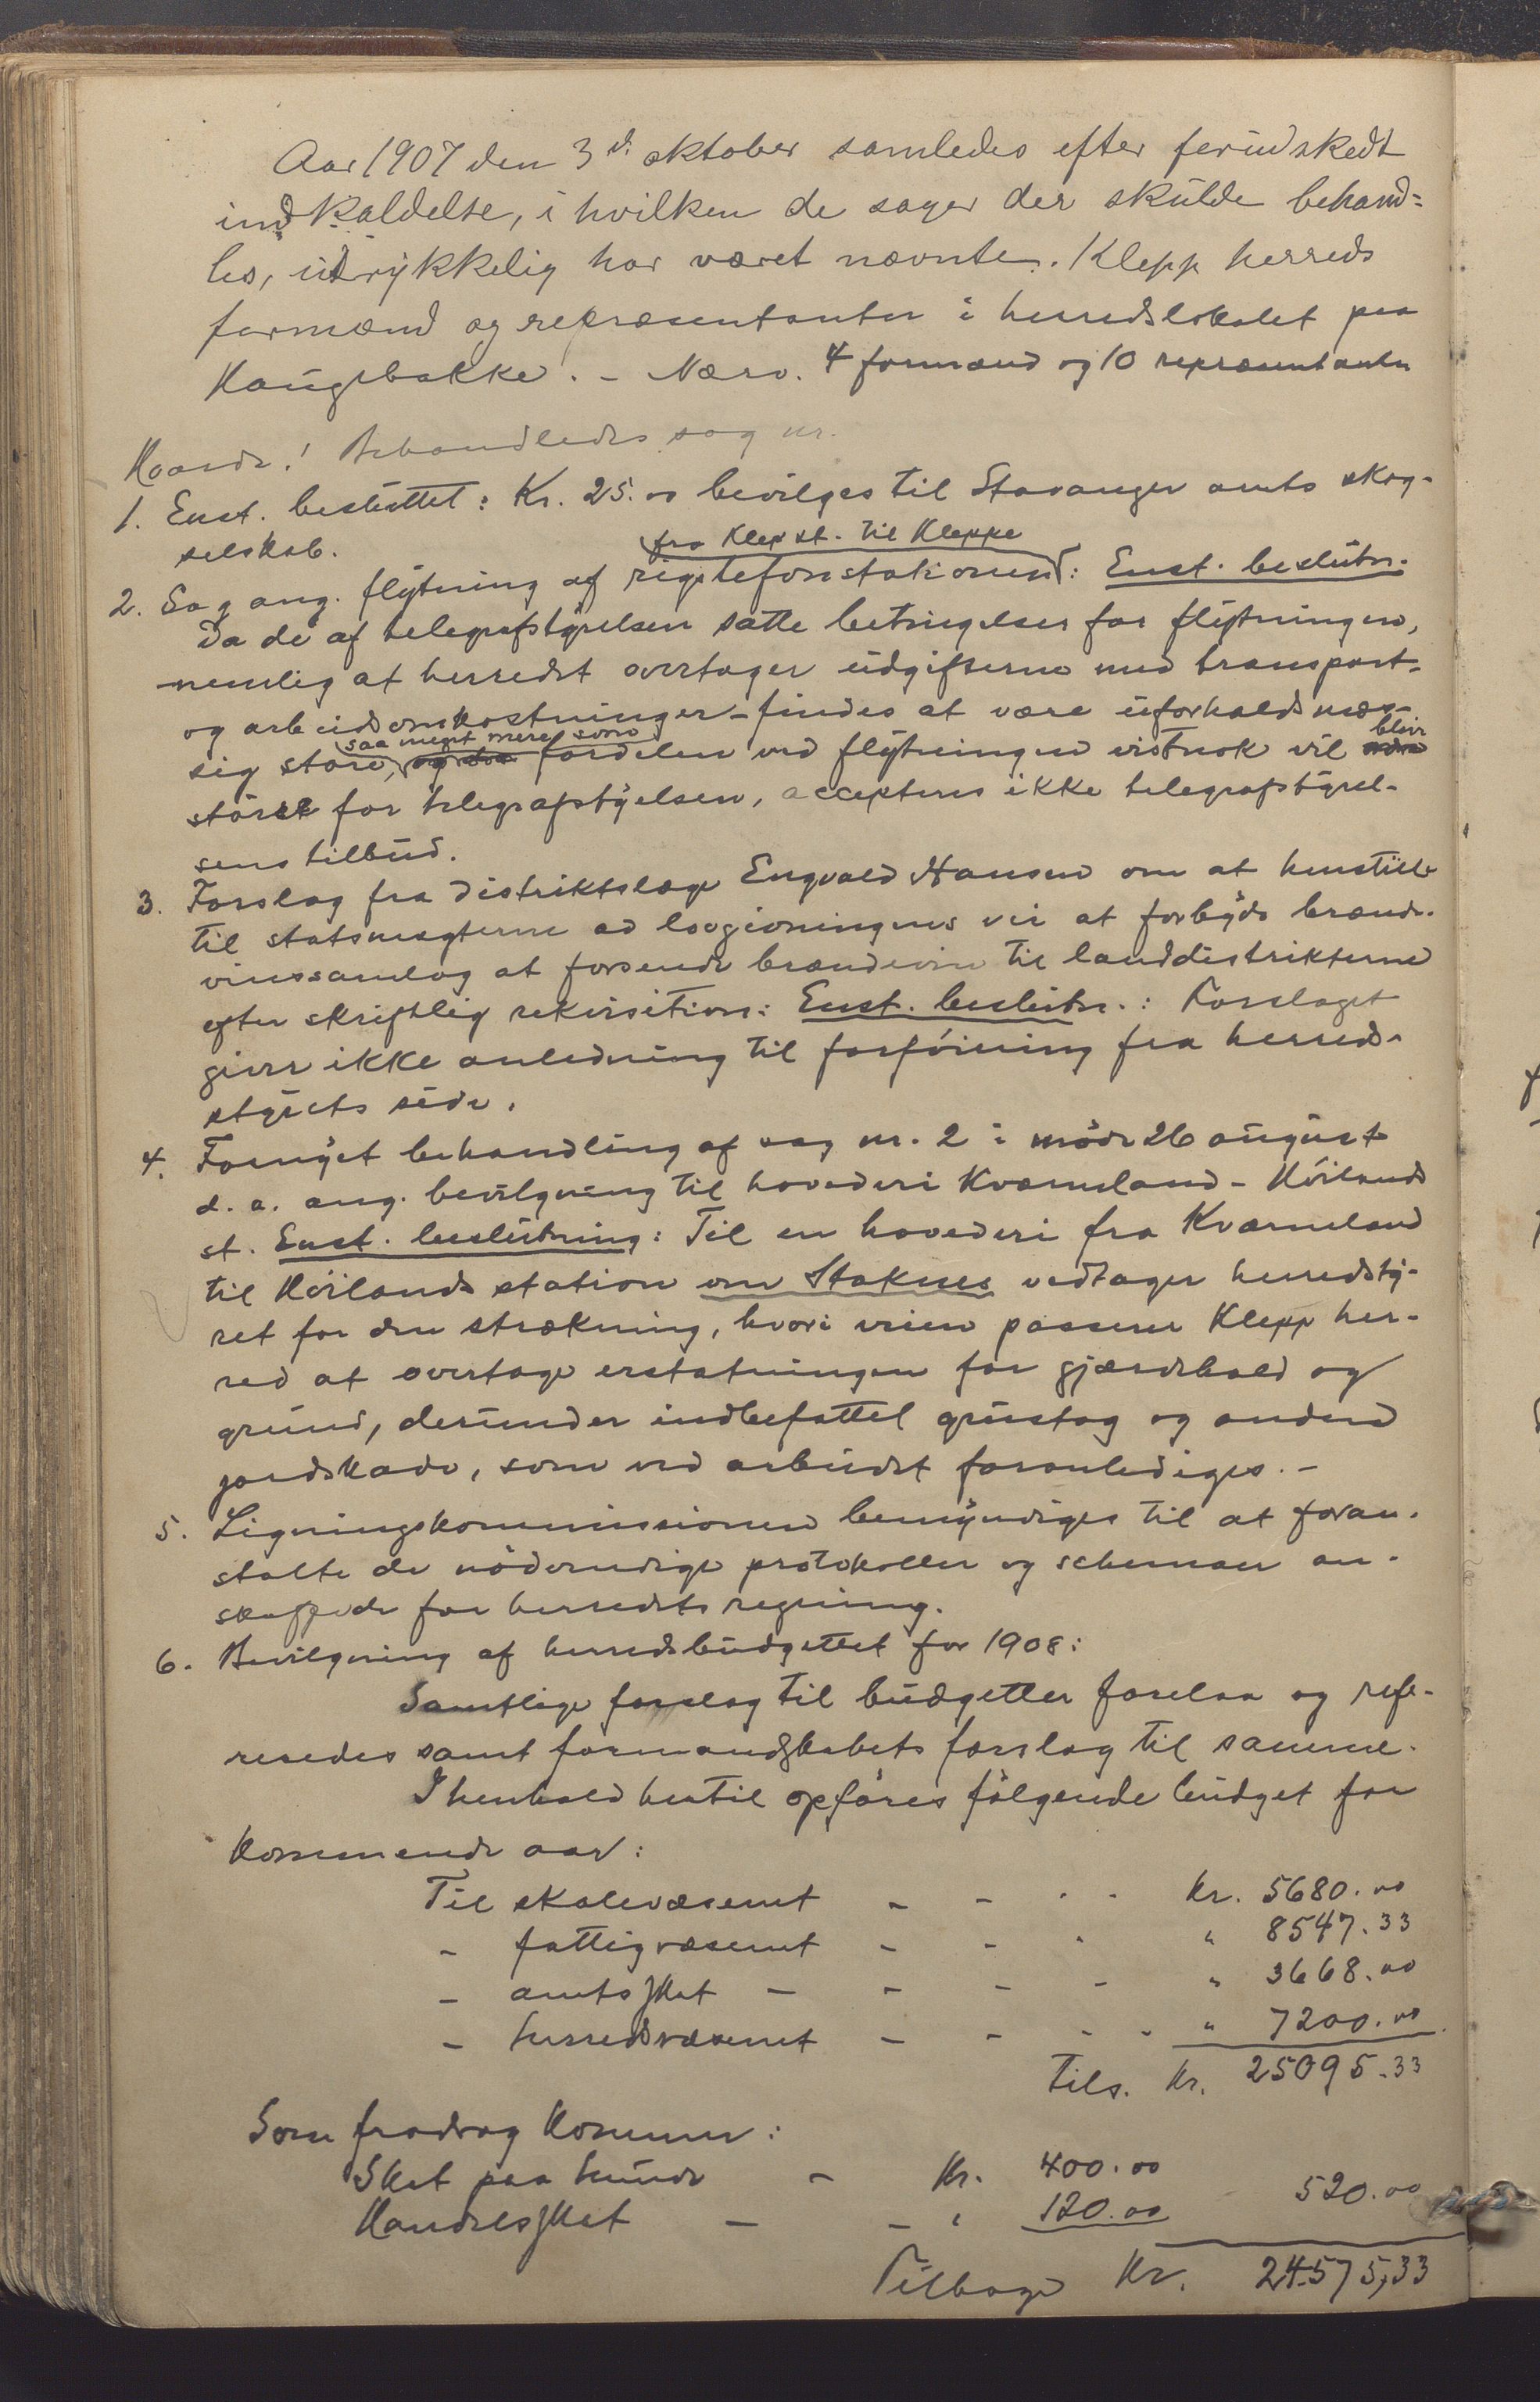 Aar 1907 den 3d. oktober samledes efter forudskedt
indkaldelse, i hvilken de sager der skulde behand=
les, udrykkelig har været nævnte. Klepp herreds
formænd og repræsentanter i herredslokalet paa
Haugebakke. - Nærv. 4 formænd og 10 repræsentanter
Hvorde! Behandledes sag nr.
1. Enst. besluttet: Kr. 25.00 bevilges til Stavanger amts skog-
selskab.
fra Klep st. til Kleppe
2. Sag ang. flytning af rigstelefonstationen: Enst. beslutn.
Da de af telegrafstyrelsen satte betingelser for flytningen,
nemlig at herredet overtager udgifterne med transport-
og arbeidsomkostninger - findes at være uforholdsmæs-
saa meget mere som blive
sig store, og da fordelen ved flytningen vistnok vil
størst for telegrafstyelsen, accepteres ikke telegrafstyrel-
sens tilbud.
3. Forslag fra distriktslæge Engvald Hansen om at henstille
til statsmagterne ad lovgivningens vei at forbyde brænde-
vinssamlag at forsende brændevin til landdistrikterne
efter skriftlig rekvisition: Enst. beslutn.: Forslaget
giver ikke anledning til forføining fra herreds-
styrets side.
4. Fornyet behandling af sag nr. 2 i møde 26 august
d. a. ang. bevilgning til hovedvei Kværneland - Høilands
st. Enst. beslutning: Til en hovedvei fra Kværneland
til Høilands station om Staknes vedtager herredsty-
ret for den strækning, hvori veien passerer Klepp her-
red at overtage erstatningen for gjærdehold og
grund, derunder indbefattet grustag og anden
jordskade, som ved arbeidet foranlediges. -
5. Ligningskommissionen bemyndiges til at foran-
stalte de nødvendige protokoller og schemaer an-
skaffede for herredets regning.
6. Bevilgning af herredsbudgettet for 1908:
Samtlige forslag til budgetter forelaa og refe-
reredes samt formandskabets forslag til samme.
I henhold hertil opføres følgende budget for
kommende aar:
Til skolevæsenet - - - - Kr. 5680.00
- fattigvæsenet - - - " 8547.33
- amtsskat - - - - " 3668.00
- herredsvæsenet - - - - " 7200.00
Tils. Kr. 25095.33
Som fradrag kommer:
Skat paa hunde - Kr. 400.00
Handelsskat - - " 120.00 520.00
Tilbage Kr. 24575,33